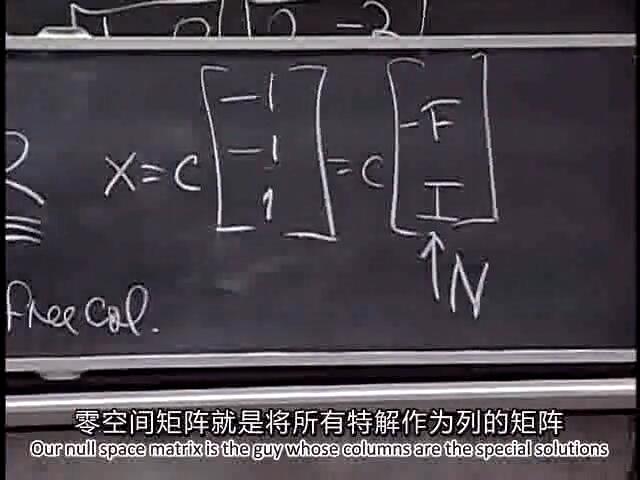 0 0 -2
R
x = c [-1 -1 1] = c [-F I]
↑ N
free col.
零空间矩阵就是将所有特解作为列的矩阵
Our null space matrix is the guy whose columns are the special solutions